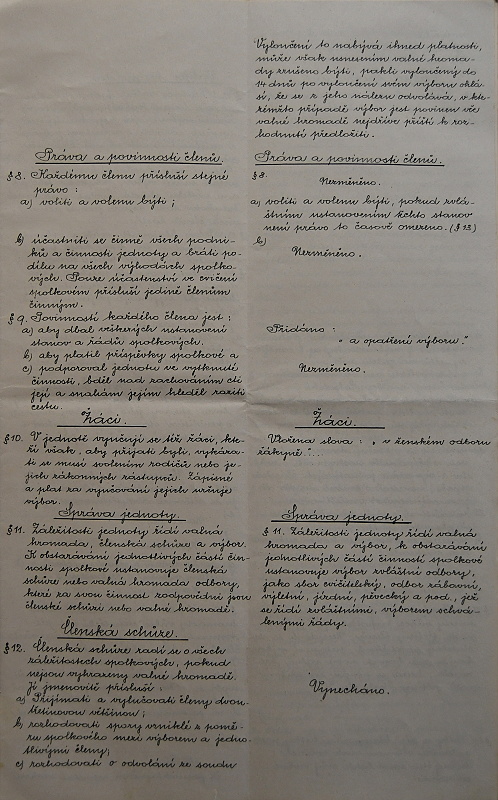 Vyloučení to nabývá ihned platnosti,
může však usnesením valné hroma-
dy zrušeno býti, pakli vyloučený do
14 dnů po vyloučení svém výboru ohlá-
sí, že se z jeho nálezu odvolává, v kte-
rémžto případě výbor jest povinen věc
valné hromadě nejdříve příští k roz-
hodnutí předložiti.
Práva a povinnosti členů.
§ 8. Každému členu přísluší stejné
právo:
a) voliti a volenu býti;
b) účastniti se činně všech podni-
ků a činnosti jednoty a bráti po-
dílu na všech výhodách spolko-
vých. Pouze účastenství ve cvičení
spolkovém přísluší jedině členům
činným.
§ 9. Povinností každého člena jest:
a) aby dbal veškerých ustanovení
stanov a řádů spolkových.
b) aby platil příspěvky spolkové a
c) podporoval jednotu ve vytknuté
činnosti, bděl nad zachováním cti
její a snahám jejím hleděl raziti
cestu.
Žáci.
§ 10. V jednotě vyučují se též žáci, kte-
ří však, aby přijati byli, vykáza-
ti se musí svolením rodičů nebo je-
jich zákonných zástupců. Zápisné
a plat za vyučování jejich určuje
výbor.
Správa jednoty.
§ 11. Záležitosti jednoty řídí valná
hromada, členská schůze a výbor.
K obstarávání jednotlivých částí čin-
nosti spolkové ustanovuje členská
schůze nebo valná hromada odbory,
které za svou činnost zodpovědní jsou
členské schůzi nebo valné hromadě.
Členská schůze.
§ 12. Členská schůze radí se o všech
záležitostech spolkových, pokud
nejsou vyhrazeny valné hromadě.
Jí jmenovitě přísluší:
a) Přijímati a vylučovati členy dvou-
třetinovou většinou;
b) rozhodovati spory vzniklé z pomě-
ru spolkového mezi výborem a jedno-
tlivými členy;
c) rozhodovati o odvolání ze soudu
Práva a povinnosti členů.
§ 8.
Nezměněno.
a) voliti a volenu býti, pokud zvlá-
štním ustanovením těchto stanov
není právo to časově omezeno. (§ 13)
b)
Nezměněno.
Přidáno:
" a opatření výboru."
Nezměněno.
Žáci.
Vložena slova: " v ženském odboru
žákyně"...
Správa jednoty.
§ 11. Záležitosti jednoty řídí valná
hromada a výbor, k obstarávání
jednotlivých částí činnosti spolkové
ustanovuje výbor zvláštní odbory,
jako sbor cvičitelský, odbor zábavní,
výletní, jízdní, pěvecký a pod., jež
se řídí zvláštními, výborem schvá-
lenými řády.
Vynecháno.